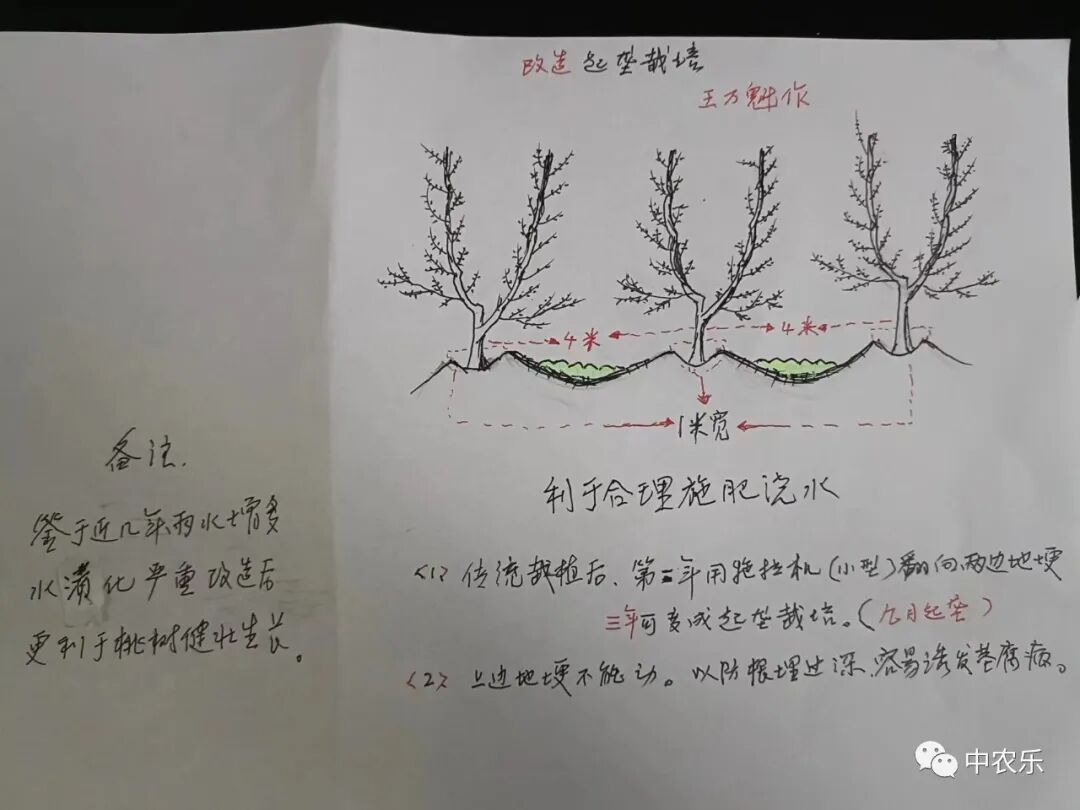 改造起垄栽培
王万魁作
4米
4米
1米宽
利于合理施肥浇水
备注.
鉴于近几年雨水增多
水渍化严重改造后
更利于桃树健壮生长。
<1>传统栽植后、第二年用拖拉机(小型)翻向两边地埂
三年可变成起垄栽培。(九月起垄)
<2>上边地埂不能动。以防根埋过深、容易诱发茎腐病。
中农乐